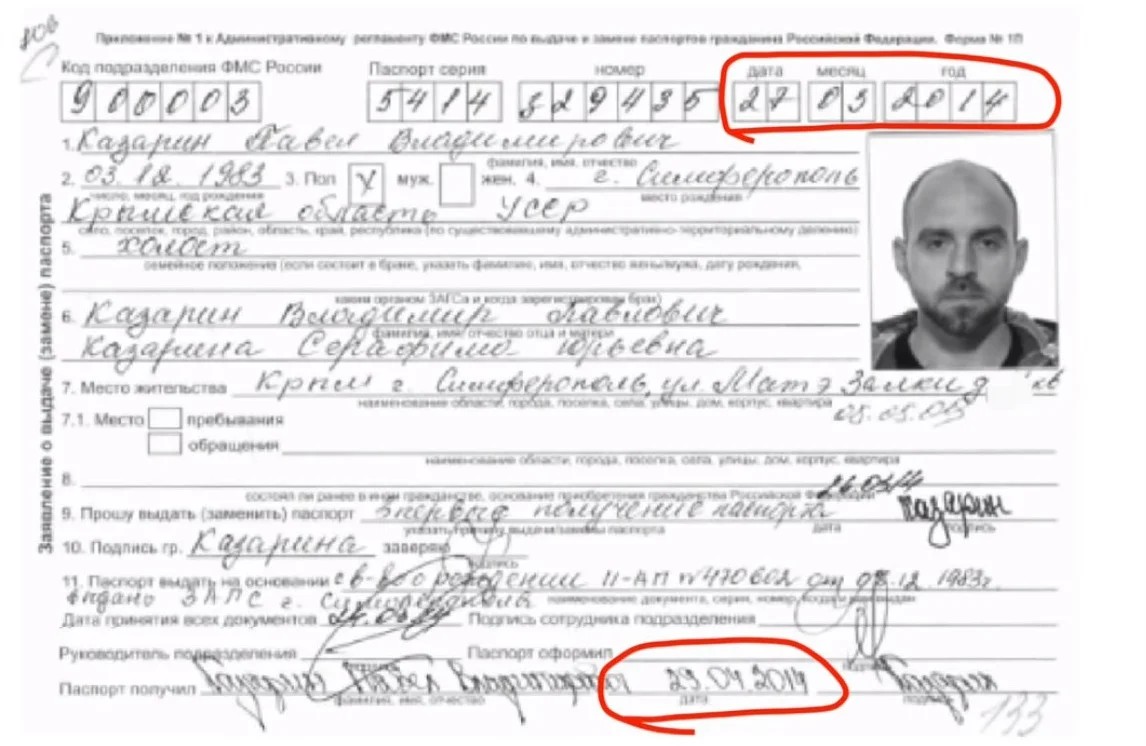 Приложение № 1 к Административному регламенту ФМС России по выдаче и замене паспортов гражданина Российской Федерации. Форма № 1П
Код подразделения ФМС России Паспорт серия номер дата месяц год
900003 5414 329435 27 03 2014
1. Казарин Павел Владимирович
фамилия, имя, отчество
2. 03.12.1983 3. Пол V муж. жен. 4. г. Симферополь
число, месяц, год рождения место рождения
Крымская область УССР
село, поселок, город, район, область, край, республика (по существовавшему административно-территориальному делению)
5. холост
семейное положение (если состоит в браке, указать фамилию, имя, отчество жены/мужа, дату рождения,
каким органом ЗАГСа и когда зарегистрирован брак)
6. Казарин Владимир Павлович
фамилия, имя, отчество отца и матери
Казарина Серафима Юрьевна
7. Место жительства Крым г. Симферополь, ул. Матэ Залки д кв
наименование области, города, поселка, села, улицы, дом, корпус, квартира
7.1. Место пребывания
обращения
наименование области, города, поселка, села, улицы, дом, корпус, квартира
8.
состоял ли ранее в ином гражданстве, основание приобретения гражданства Российской Федерации
9. Прошу выдать (заменить) паспорт Впервые получение паспорта Казарин
указать причину выдачи/замены паспорта дата подпись
10. Подпись гр. Казарина заверяю
подпись
11. Паспорт выдать на основании св-во о рождении II-АП №470602 от 08.12.1983г.
выдано ЗАГС г. Симферополя наименование документа, серия, номер, когда и кем выдан
Дата принятия всех документов Подпись сотрудника подразделения
Руководитель подразделения Паспорт оформил
подпись
Паспорт получил Казарин Павел Владимирович 29.04.2014
фамилия, имя, отчество дата подпись
133
Заявление о выдаче (замене) паспорта